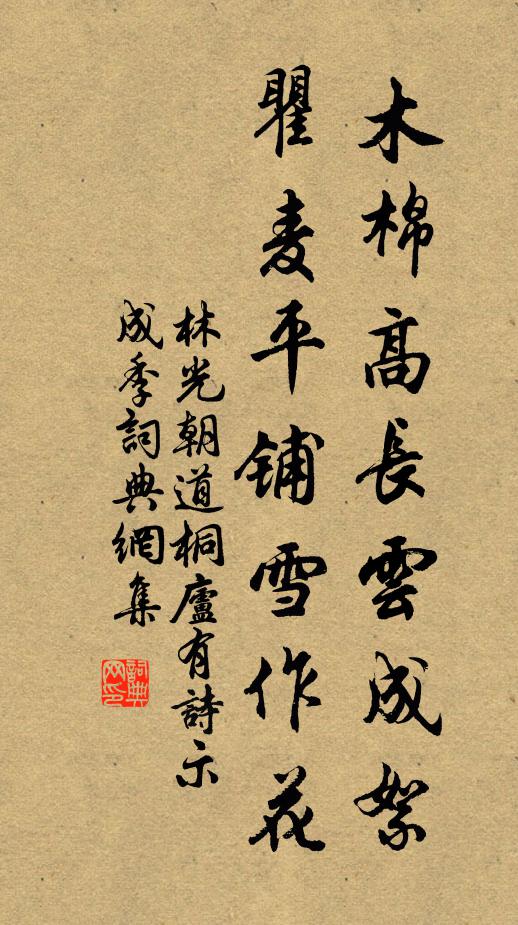 木棉高長雲成絮
瞿麦平鋪雪作花
林光朝道桐廬有詩示
成季詞典網集
詞典網印